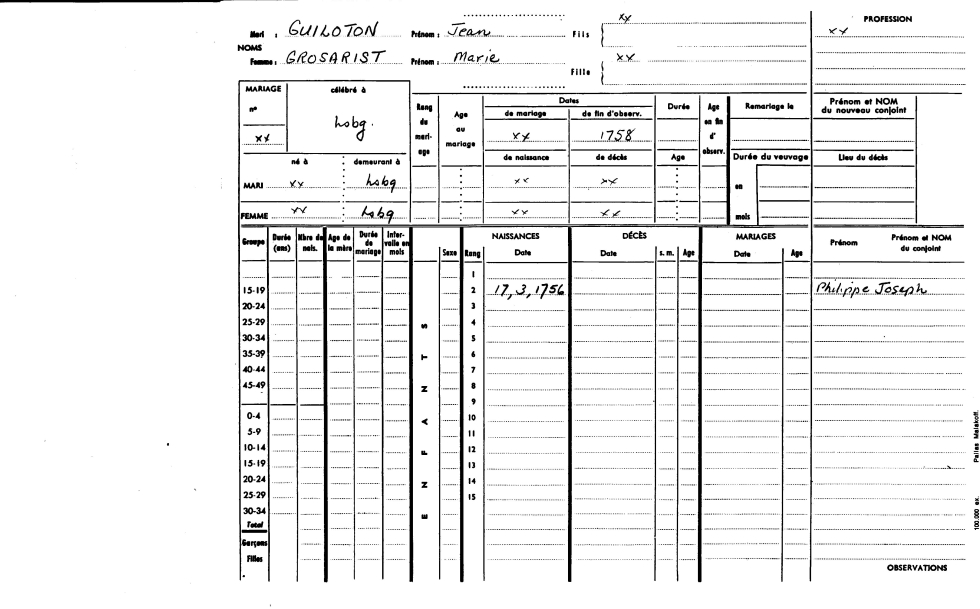 Mari : GUILOTON Prénom : Jean Fils { xx PROFESSION
xx
NOMS
Femme : GROSARIST Prénom : Marie Fille { xx
MARIAGE célébré à
n° xx hsbg.
Rang du mariage Age au mariage Dates Durée Age en fin d'observ. Remariage le Prénom et NOM du nouveau conjoint
de mariage de fin d'observ.
xx 1758
né à demeurant à de naissance de décès Age Durée du veuvage Lieu du décès
MARI xx hsbg xx xx en
FEMME xx hsbg xx xx mois
Groupe Durée (ans) Nbre de nais. Age de la mère Durée de mariage Intervalle en mois ENFANTS Sexe Rang NAISSANCES Date DÉCÈS Date s. m. Age MARIAGES Date Age Prénom Prénom et NOM du conjoint
1
15-19 2 17, 3, 1756 Philippe Joseph
20-24 3
25-29 4
30-34 5
35-39 6
40-44 7
45-49 8
9
0-4 10
5-9 11
10-14 12
15-19 13
20-24 14
25-29 15
30-34
Total
Garçons
Filles
OBSERVATIONS
100.000 ex. Pairies Malakoff.